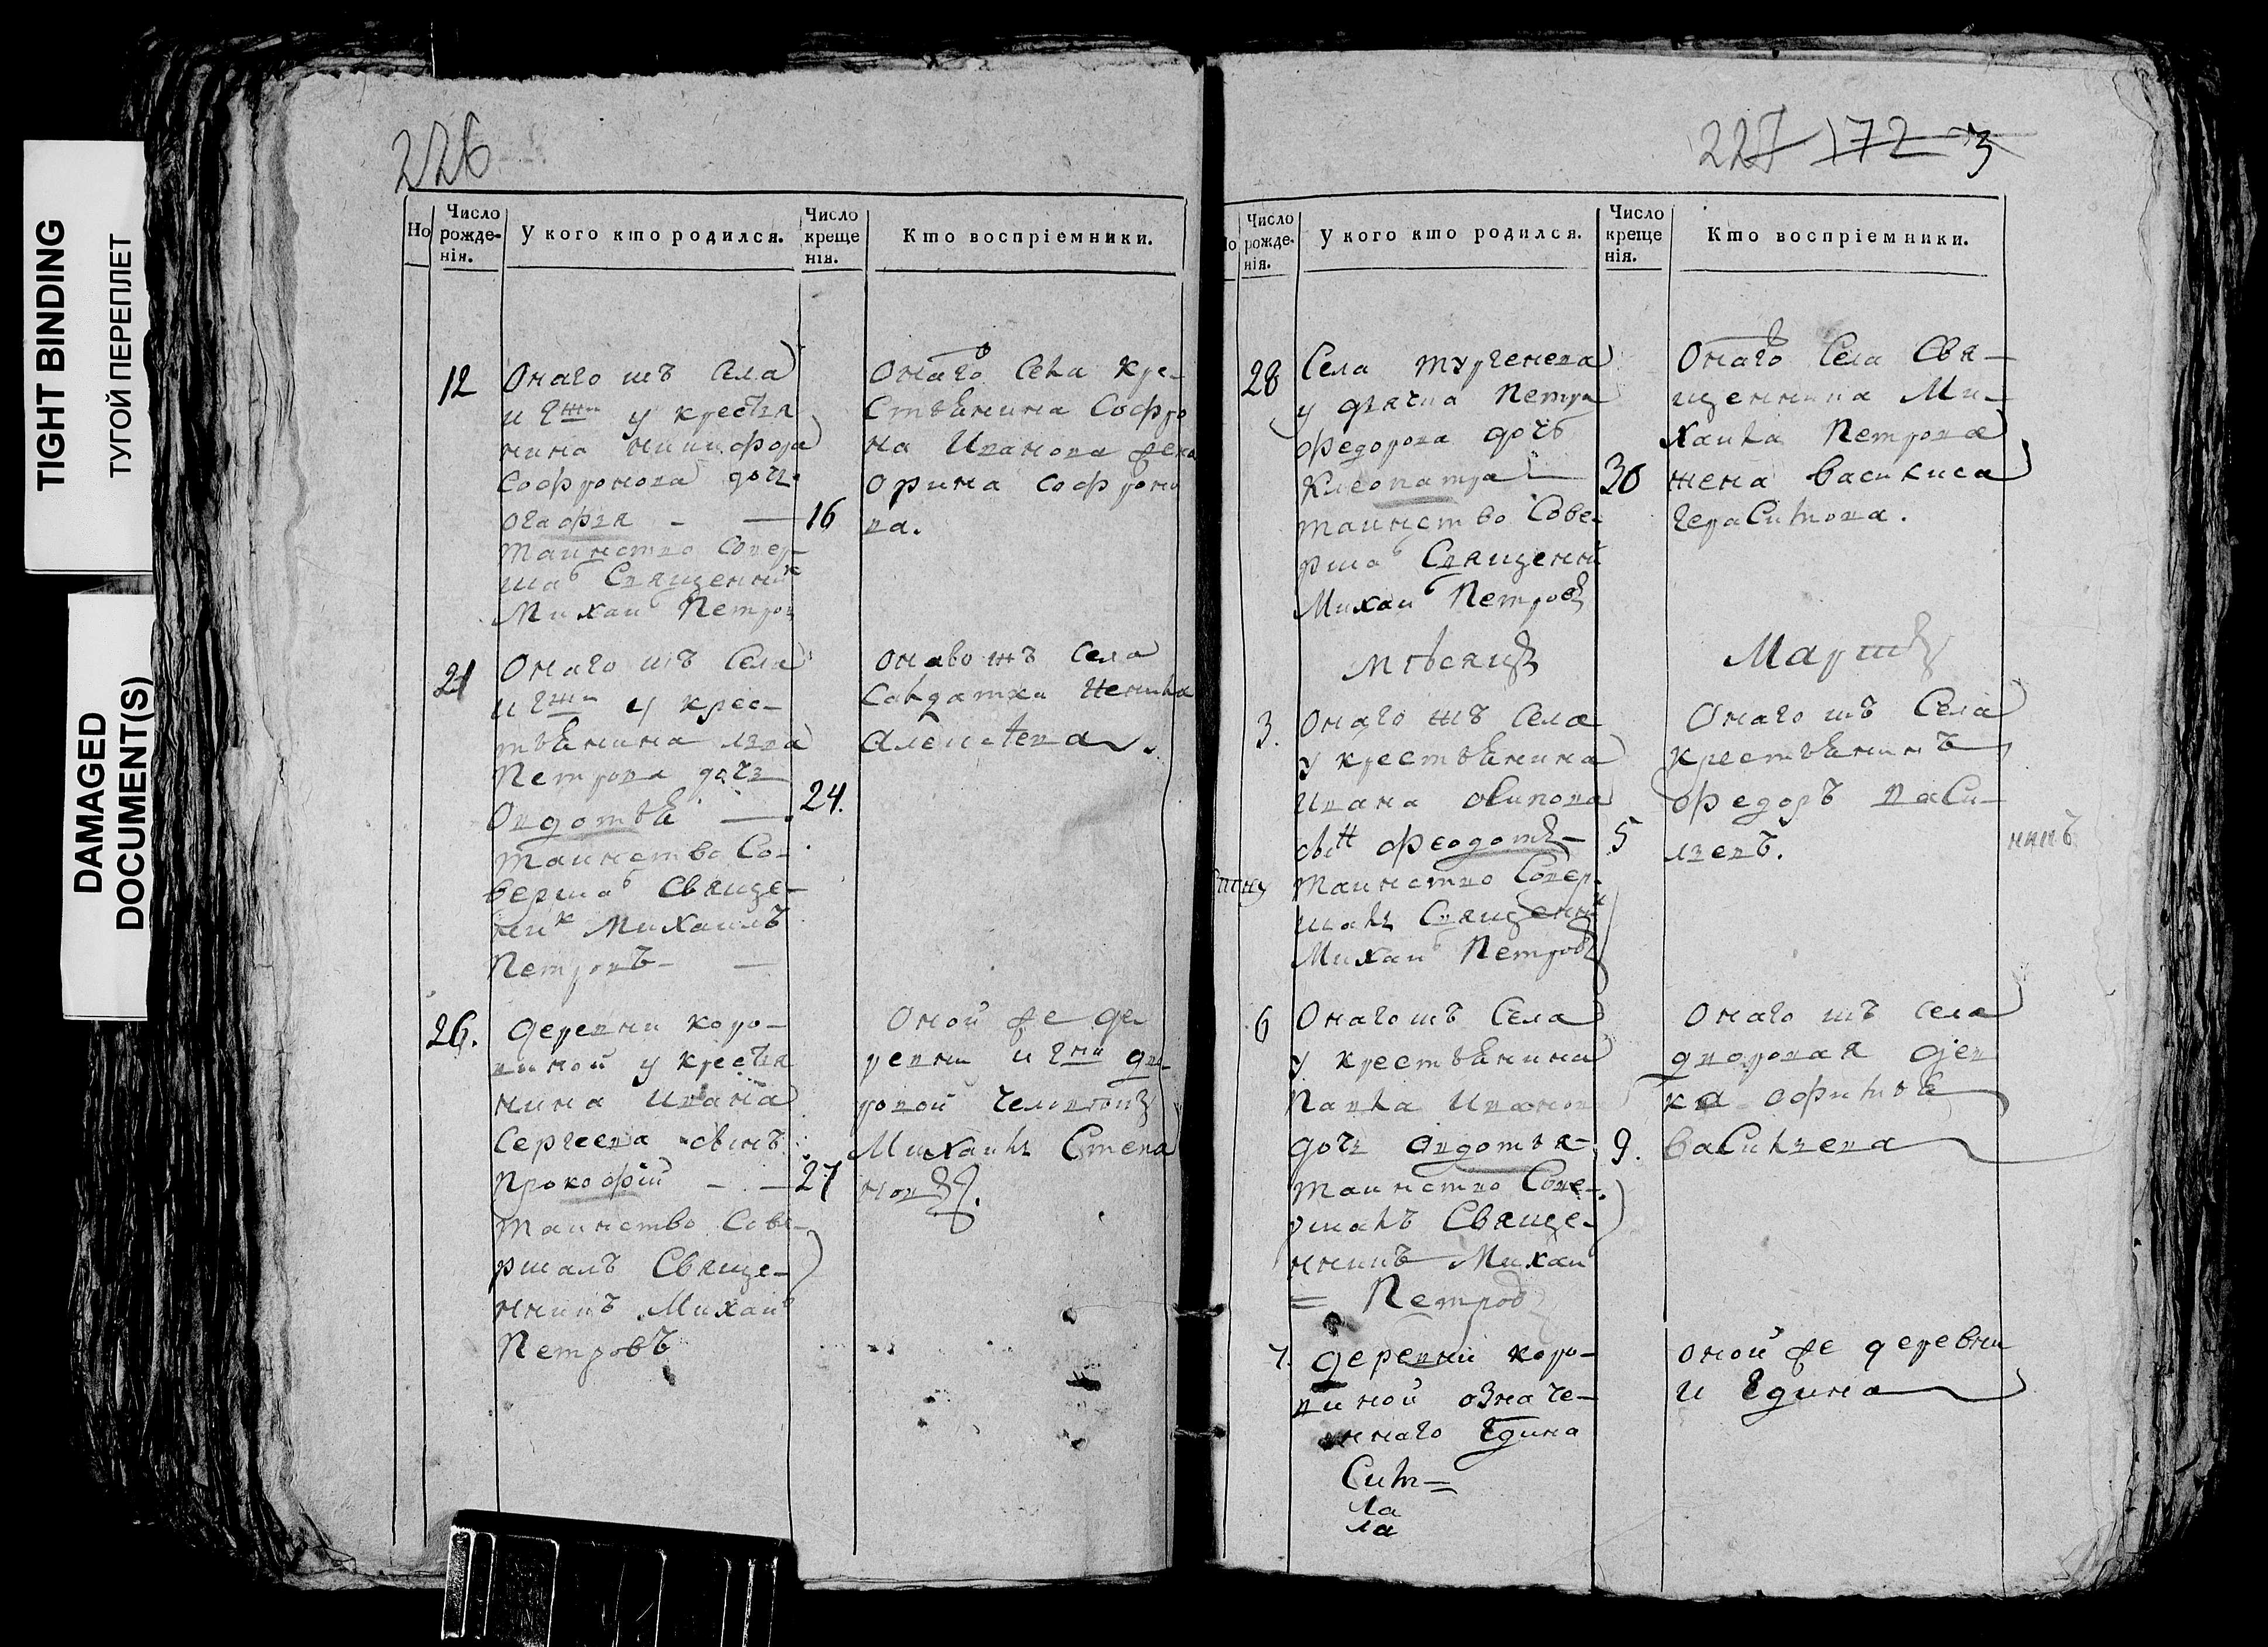 TIGHT BINDING
ТУГОЙ ПЕРЕПЛЕТ
DAMAGED
DOCUMENT(S)
226
Но
Число рожденія.
У кого кто родился.
Число крещенія.
Кто воспріемники.
12
Онаго жъ Села
и гжи у крестья
нина никифора
Софронова дочь
Агафья
16
таинство Совер-
ша Священник
Михаил Петров
Онаго Села кре-
стьянина Софро
на Иванова жена
Орина Софроно
ва.
21
Онаго жъ Села
и гжи у крес-
тьянина
Петрова дочь
Овдотья
24.
таинство Со-
верша Свяще-
ник Михаилъ
Петровъ
онаво жъ Села
Салдатка
Алексѣева
26.
деревни коро-
виной у крестья
нина Ивана
Сергеева сынъ
Прокофій
27
таинство Сове-
ршалъ Свяще-
нникъ Михаил
Петровъ
Оной же де
ревни и гжи дво
ровой человекъ
Михаилъ Степа
новъ.
227 172 3
Число рожденія.
У кого кто родился.
Число крещенія.
Кто воспріемники.
28
Села тургенева
у дьячка Петра
Федорова дочь
Клеопатра
30
таинство Сове-
рша Священик
Михаил Петровъ
Онаго Села Свя-
щенника Ми-
хаила Петрова
жена Василиса
Герасимова.
Мѣсяцъ
Мартъ
3.
Онаго жъ Села
у крестьянина
Ивана
сынъ Феодотъ
5
таинство Совер-
шалъ Священник
Михаил Петровъ
Онаго жъ Села
крестьянинъ
Федоръ Васи-
льевъ.
6
Онаго жъ Села
у крестьянина
Павла Иванов
дочь Авдотья
9.
таинство Сове-
ршалъ Свяще-
нникъ Михаи
Петров
Онаго жъ села
дворовая дев
ка Офимья
Васильева
7.
деревни коро-
виной означе-
ннаго Едина
оной же деревни
и Едина